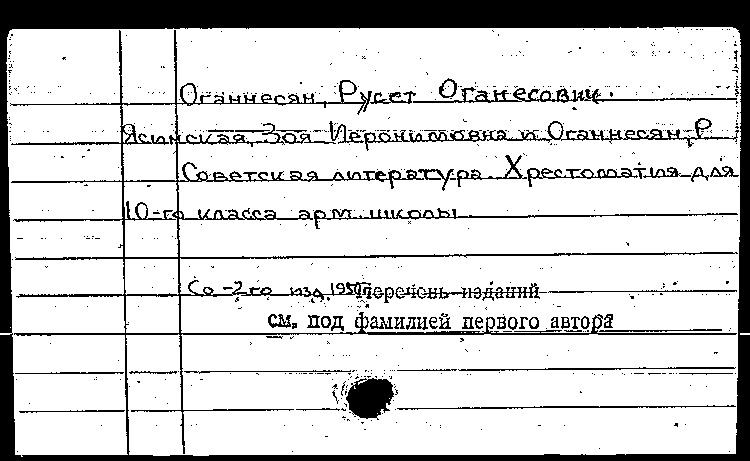 Оганнесян, Русет Оганесович.
Ясинская, Зоя Иеронимовна и Оганнесян, Р
Советская литература. Хрестоматия для
10-го класса арм. школы.
Со -2го изд. 1950г. перечень изданий
см. под фамилией первого автора